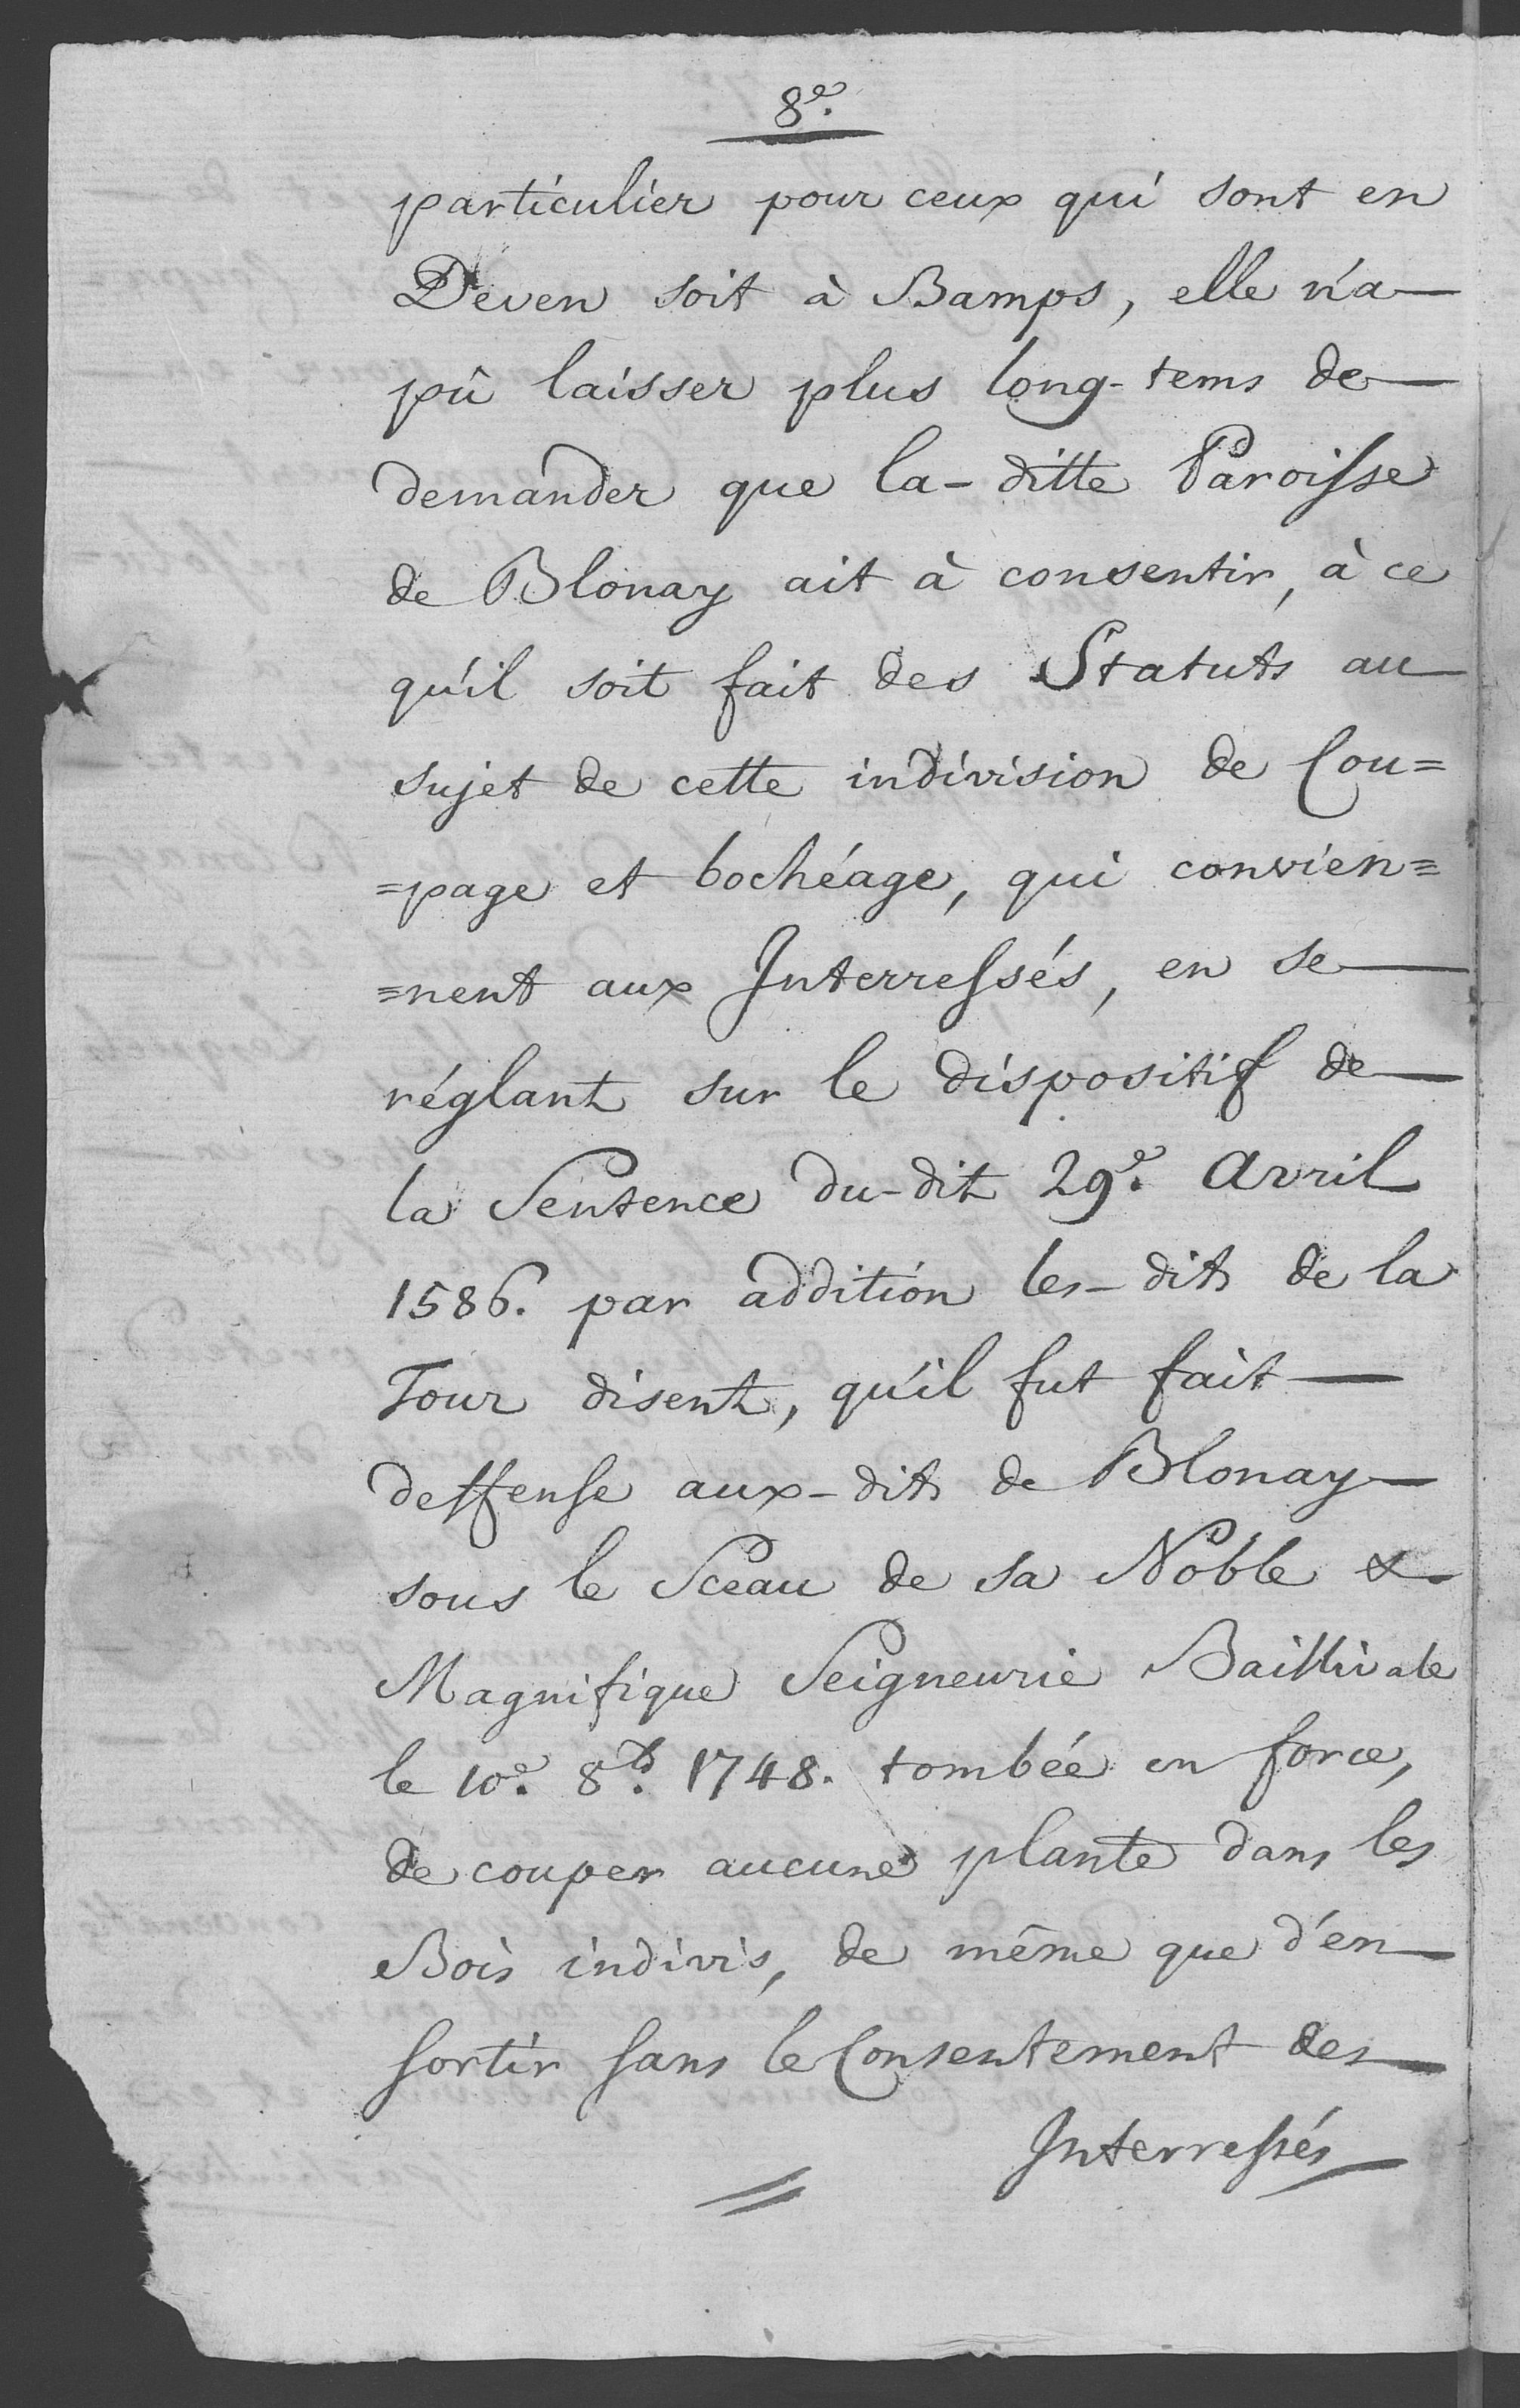 8.e
particulier pour ceux qui sont en
Deven soit à Bamps, elle n'a
pû laisser plus long-tems de
demander que la-ditte Paroisse
de Blonay ait à consentir, à ce
qu'il soit fait des Statuts au
sujet de cette indivision de Cou=
=page et bochéage, qui convien=
=nent aux Interressés, en se
réglant sur le dispositif de
la Sentence du-dit 29.e Avril
1586. par addition les-dits de la
Tour disent, qu'il fut fait
deffense aux-dits de Blonay
sous le Sceau de sa Noble &
Magnifique Seigneurie Baillivale
le 10.e 8.b 1748. tombée en force,
de couper aucune plante dans les
Bois indivis, de même que d'en
sortir sans le Consentement des
Interressés